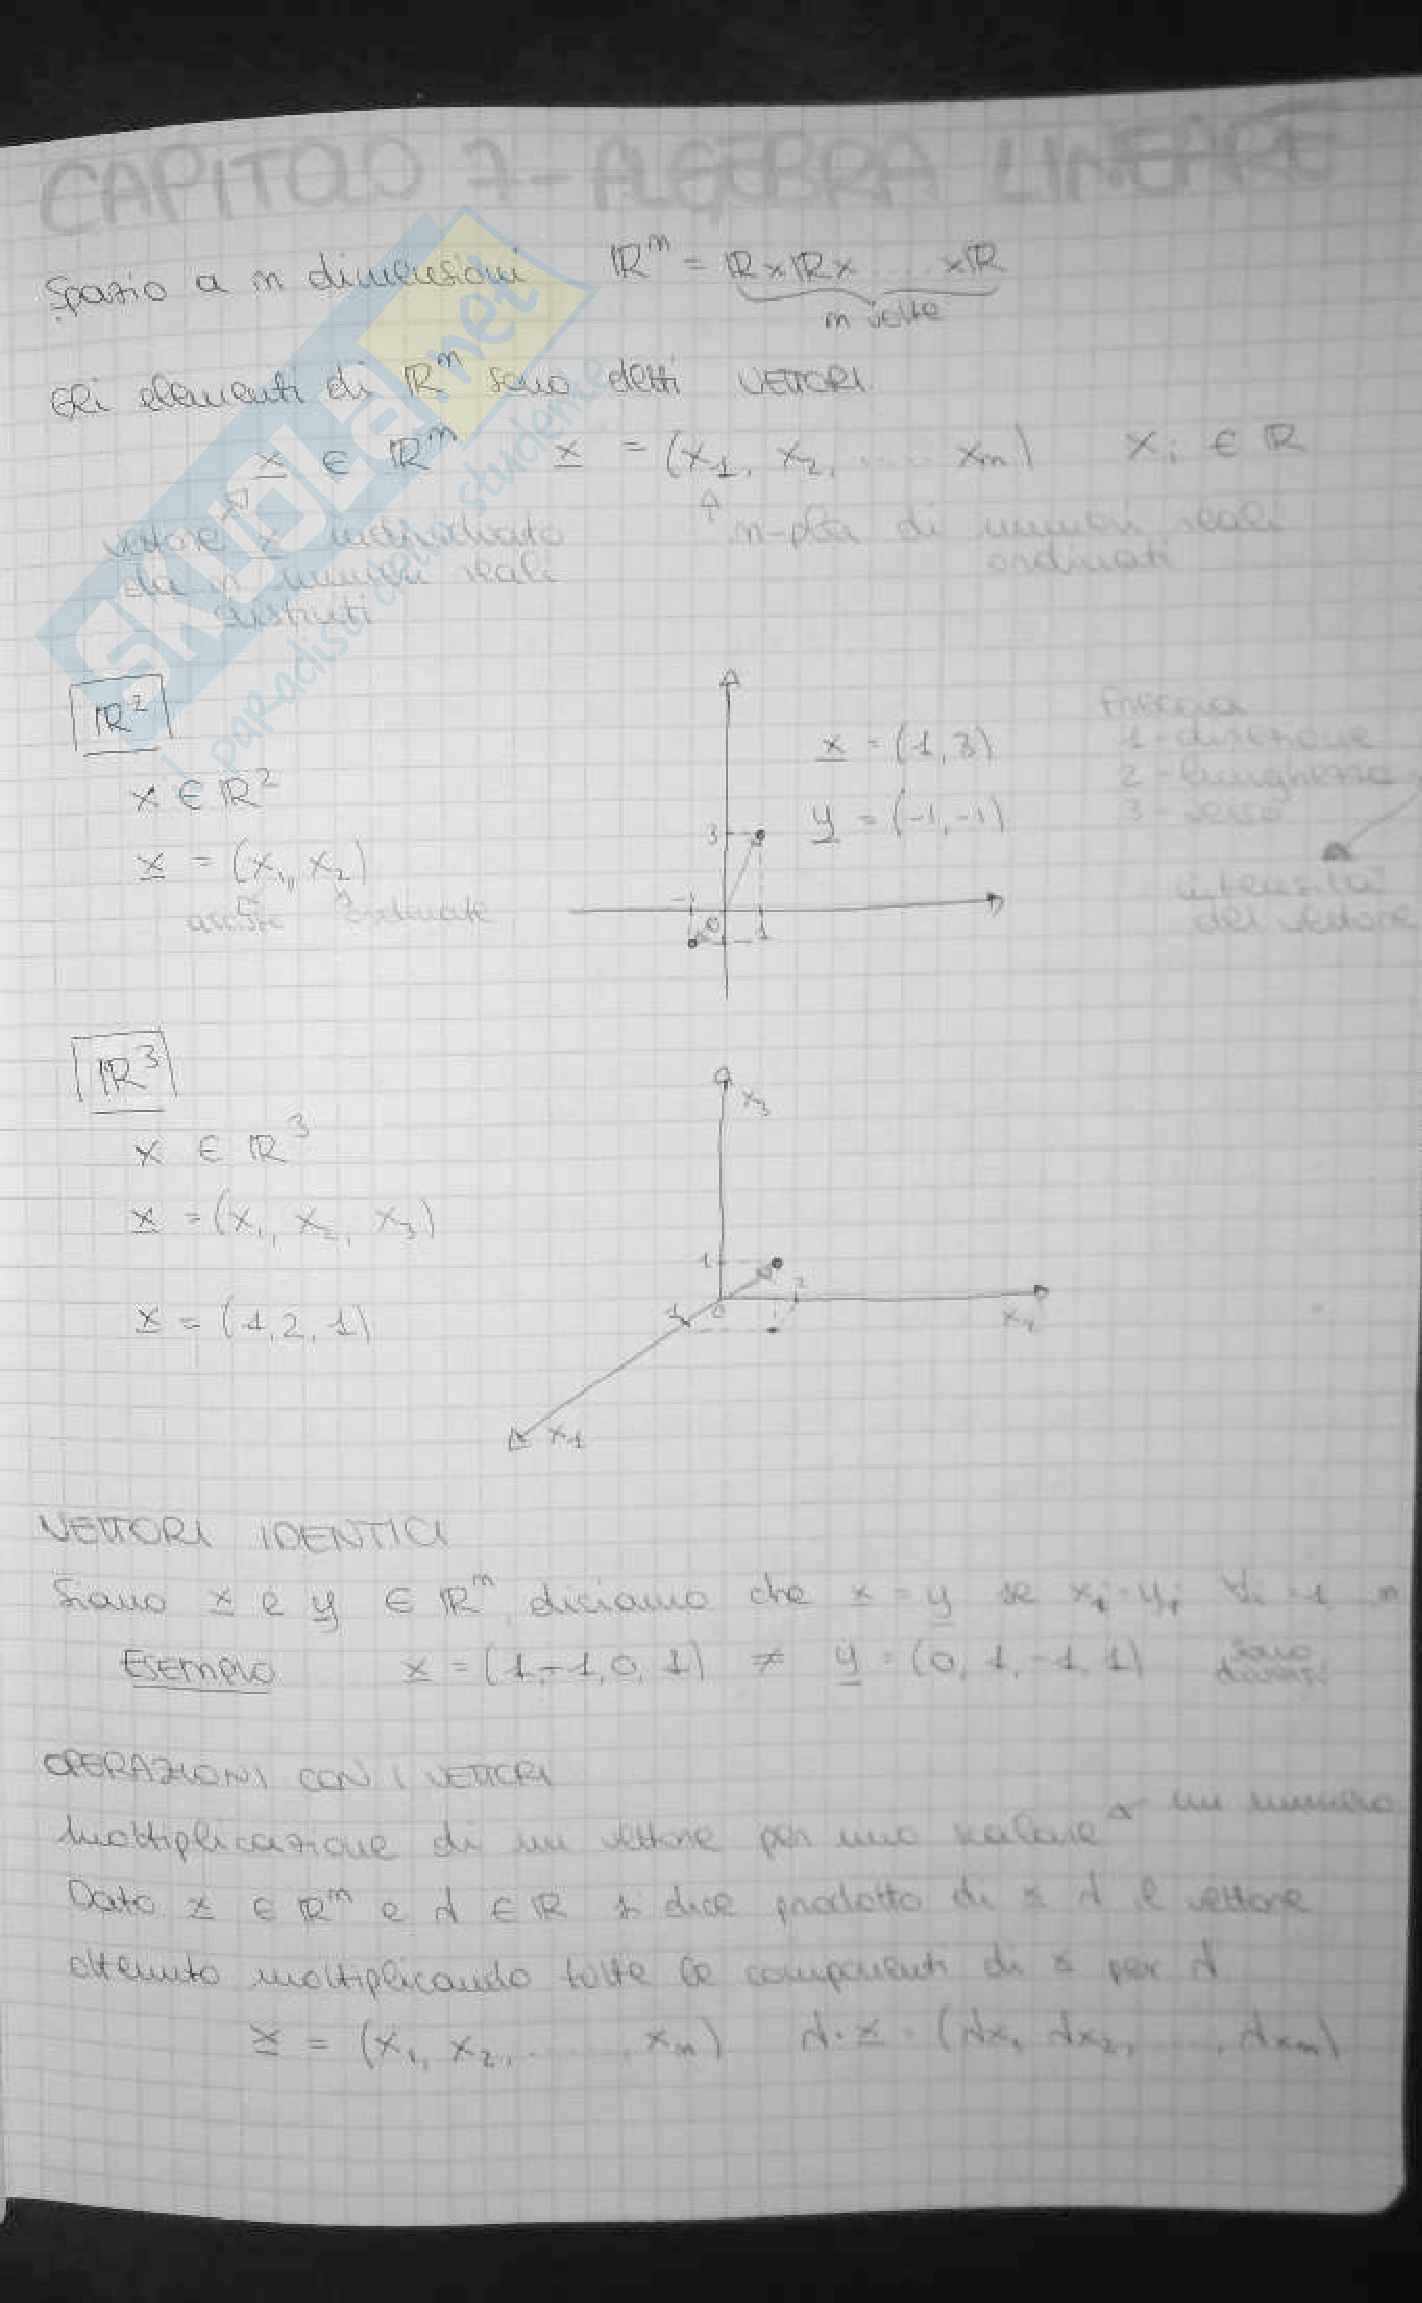 CAPITOLO 7 - ALGEBRA LINEARE
Spazio a n dimensioni ℝⁿ = ℝ×ℝ× ... ×ℝ
n volte
Gli elementi di ℝⁿ sono detti VETTORI
x ∈ ℝⁿ x = (x₁, x₂, ..... xₙ) xᵢ ∈ ℝ
vettore x individuato
da n numeri reali
n-pla di numeri reali
ordinati
SKUOLA.net
il paradiso dello studente
ℝ²
x ∈ ℝ²
x = (x₁, x₂)
ascisse ordinate
x = (1, 3)
y = (-1, -1)
3
-1
0
1
1 - direzione
2 - lunghezza
3 - verso
intensità
del vettore
ℝ³
x ∈ ℝ³
x = (x₁, x₂, x₃)
x = (1, 2, 1)
x₃
1
2
1
0
x₂
x₁
VETTORI IDENTICI
Siano x e y ∈ ℝⁿ, diciamo che x = y se xᵢ = yᵢ ∀i = 1 n
Esempio x = (1, -1, 0, 1) ≠ y = (0, 1, -1, 1) sono
diversi
OPERAZIONI CON I VETTORI
Moltiplicazione di un vettore per uno scalare un numero
Dato x ∈ ℝⁿ e λ ∈ ℝ si dice prodotto di x λ il vettore
ottenuto moltiplicando tutte le componenti di x per λ
x = (x₁, x₂, ......, xₙ) λ·x = (λx₁, λx₂, ...., λxₙ)